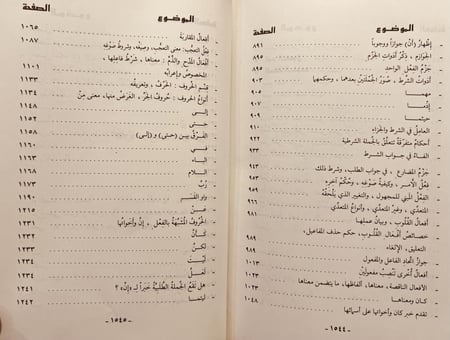 الموضوع الصفحة
إظهارُ (أنْ) جوازاً ووجوباً ٨٩١
الجوازم ، ذكر أدوات الجزم ٨٩٥
جزمُ الفعل الواحد ٨٩٥
أدوات الشرط ، صور الجملتين بعدهما ، وحكمهما ٩٠٣
مهما
إذْما
حيثما
العامل في الشرط والجزاء ٩١٠
أحكام متفرقة تتعلّق بالجملة الشرطية ٩٢٢
الفاء في جواب الشرط
جزمُ المضارع ، في جواب الطلب، وشرط ذلك ٩٤٣
فِعْلُ الأمر ، وكيفيّة صَوْغه ، وحُكْمُ آخره ٩٥٣
الفعل المبني للمجهول ، والتغيير الذي يلْحَقُه
المتعدّي ، وغيرُ المتعدّي ، وأنواعُ المتعدّي
أفعالُ القُلُوب ، وبيانُ عملها
خصائصُ أفعال القلوب، حكم حذف المفاعيل،
التعليق، الإلغاء ٩٨٩
جوازُ اتحاد الفاعل والمفعول
أفعالٌ أُخرى تنصبُ مفعولين ١٠١٣
الأفعال الناقصة، معناها، ألفاظها، ما يتضمن معناها، ١٠٢٣
كان ومعناها ١٠٤٨
تقدم خبر كان وأخواتها على أسمائها
-١٥٤٤-
الموضوع الصفحة
أفعالُ المقاربة ١٠٦٥
فِعْلُ التعجُّب: معنى التعجب، وصيغُه، وشروطُ صَوْغه ١٠٨٧
أفعالُ المدْح والذّمّ : معناها، شرْطُ فاعلها،
المخصوصُ وإعرابُه ١١٠١
قِسْم الحروف: الحَرْفُ ، وتعريفُه ١١٣٣
أنواعُ الحروف : حُروفُ الجَرّ، الغَرَضُ منها، معنى مِنْ ١١٣٤
إلى ١١٤٨
حتى
الفَرْقُ بين (حتى) و (إلى) ١١٥٨
في ١١٦٠
الباء ١١٦٣
اللام ١١٦٨
رُبَّ ١١٧٣
واو القسم
عن ١٢١٥
الحُروفُ المشبّهة بالفعل ، إنَّ وأخواتُها ١٢٣٠
كأنَّ ١٢٣١
لكنَّ ١٢٣٣
ليْتَ ١٢٣٤
لعلَّ ١٢٣٤
هل تَقَعُ الجملة الطَّلَبيّةُ خبراً لـ «إنَّ» ؟ ١٢٤١
ليتما ١٢٤٢
-١٥٤٥-